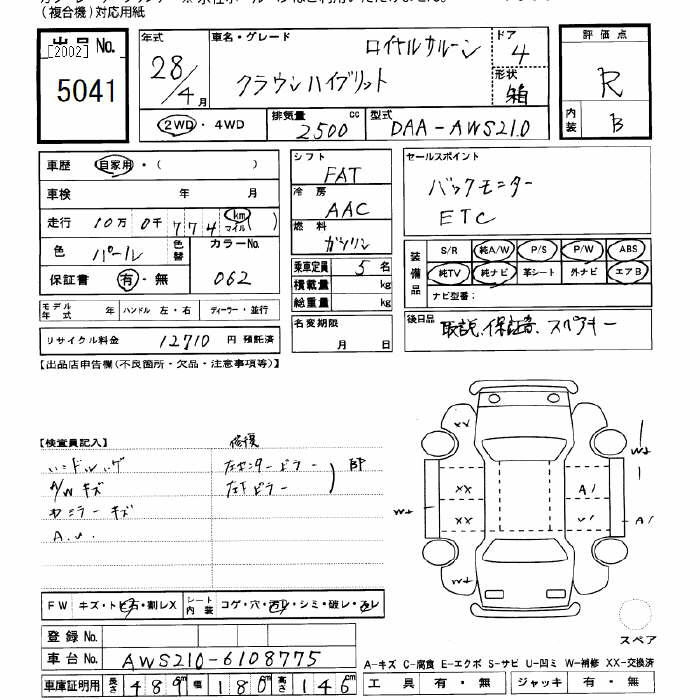 (複合機)対応用紙
出品No.
[2002]
5041
年式
28/4月
車名・グレード
ロイヤルサルーン
クラウンハイブリット
ドア
4
形状
箱
評価点
R
内装
B
2WD・4WD
排気量
2500 cc
型式
DAA-AWS210
車歴 自家用・( )
車検 年 月
走行 10万 0千 774 km マイル ( )
色 パール 色替 カラーNo.
保証書 有・無 062
モデル年式 年 ハンドル 左・右 ディーラー・並行
リサイクル料金 12710 円 預託済
シフト
FAT
冷房
AAC
燃料
ガソリン
乗車定員 5 名
積載量 kg
総重量 kg
名変期限
月 日
セールスポイント
バックモニター
ETC
装備品
S/R 純A/W P/S P/W ABS
純TV 純ナビ 革シート 外ナビ エアB
ナビ型番:
後日品
取説、保証書、スペアキー
【出品店申告欄(不良箇所・欠品・注意事項等)】
【検査員記入】
修復
ハンドルハゲ 左センターピラー
A/W キズ 左Fピラー
カミラー キズ
A.U.
XX
XX A1
XX
W2
A1
FW キズ・トビ石・割レX シート内装 コゲ・穴・汚レ・シミ・破レ・スレ
登録No.
車台No. AWS210-6108775
車庫証明用 長さ 489 幅 180 高さ 146 cm
スペア
A-キズ C-腐食 E-エクボ S-サビ U-凹ミ W-補修 XX-交換済
工具 有・無 ジャッキ 有・無